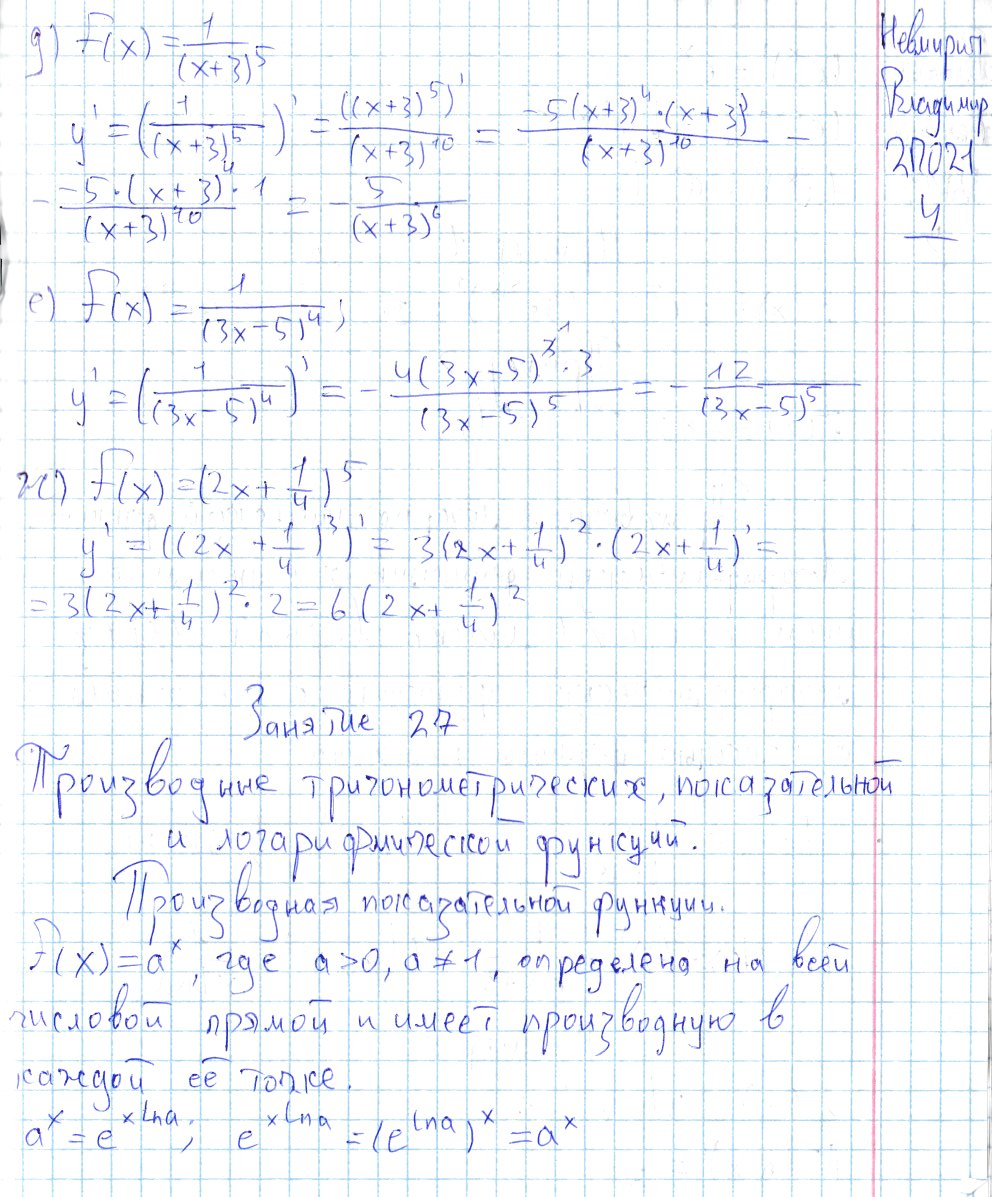 д) f(x) = 1/(x+3)^5
y' = (1/(x+3)^5)' = ((x+3)^5)'/(x+3)^10 = -5(x+3)^4·(x+3)'/(x+3)^10 =
= -5·(x+3)^4·1/(x+3)^10 = -5/(x+3)^6
е) f(x) = 1/(3x-5)^4;
y' = (1/(3x-5)^4)' = -4(3x-5)^3·3/(3x-5)^5 = -12/(3x-5)^5
ж) f(x) = (2x+1/4)^5
y' = ((2x+1/4)^3)' = 3(2x+1/4)^2·(2x+1/4)' =
= 3(2x+1/4)^2·2 = 6(2x+1/4)^2
Занятие 27
Производные тригонометрических, показательной
и логарифмической функций.
Производная показательной функции.
f(x) = a^x, где a>0, a≠1, определена на всей
числовой прямой и имеет производную в
каждой её точке.
a^x = e^(x ln a); e^(x ln a) = (e^(ln a))^x = a^x
Невмирип
Владимир
2П021
4